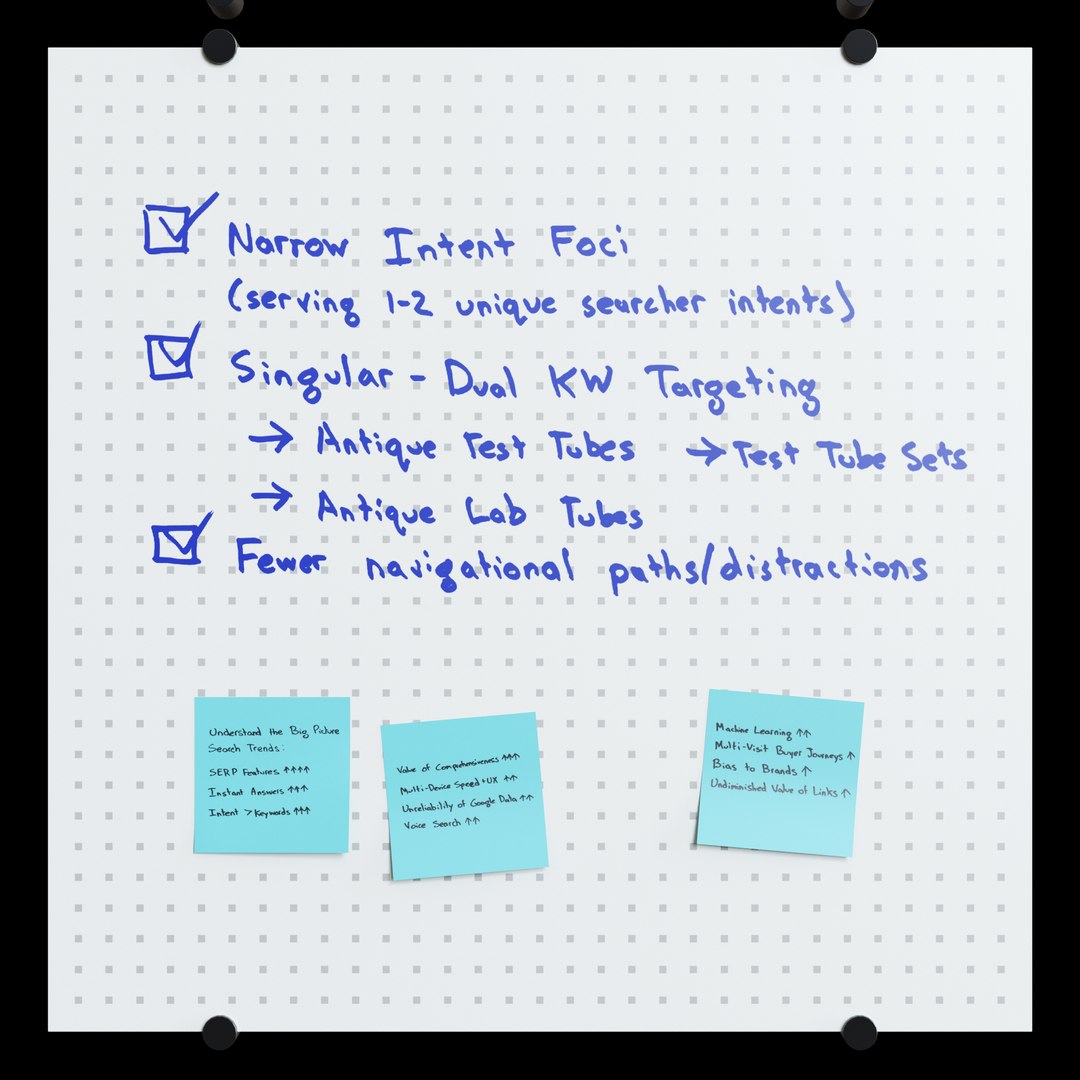 Narrow Intent Foci
(serving 1-2 unique searcher intents)
Singular - Dual KW Targeting
→ Antique Test Tubes → Test Tube Sets
→ Antique Lab Tubes
Fewer navigational paths/distractions
Understand the Big Picture
Search Trends:
SERP Features ↑↑↑↑
Instant Answers ↑↑↑
Intent > Keywords ↑↑↑
Value of Comprehensiveness ↑↑↑
Multi-Device Speed + UX ↑↑
Unreliability of Google Data ↑↑
Voice Search ↑↑
Machine Learning ↑↑
Multi-Visit Buyer Journeys ↑
Bias to Brands ↑
Undiminished Value of Links ↑